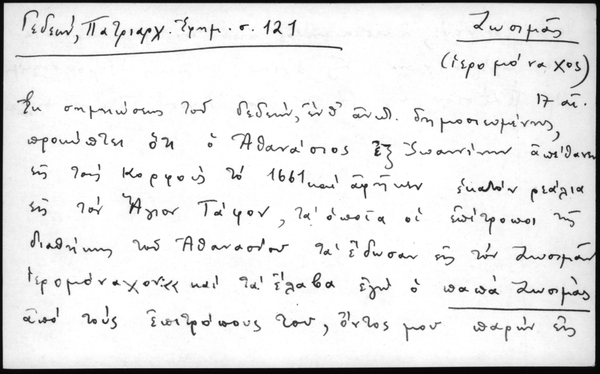 Γεδεών, Πατριαρχ. Ἐφημ. σ. 121
Ζωσιμᾶς
(ἱερομόναχος)
17 αἰ.
Ἐκ σημειώσεως τοῦ Γεδεών, ἐνθ' ἀνωτ. δημοσιευμένης,
προκύπτει ὅτι ὁ Ἀθανάσιος ἐξ Ἰωαννίνων ἀπέθανεν
εἰς τοὺς Κορφοὺς τὸ 1661 καὶ ἀφῆκεν ἑκατὸν ρεάλια
εἰς τὸν Ἅγιον Τάφον, τὰ ὁποῖα οἱ ἐπίτροποι τῆς
διαθήκης τοῦ Ἀθανασίου τὰ ἔδωσαν εἰς τὸν Ζωσιμᾶν
ἱερομόναχον« καὶ τὰ ἔλαβα ἐγὼ ὁ παπᾶ Ζωσιμᾶς
ἀπὸ τοὺς ἐπιτρόπους του, ὄντος μου παρὼν εἰς